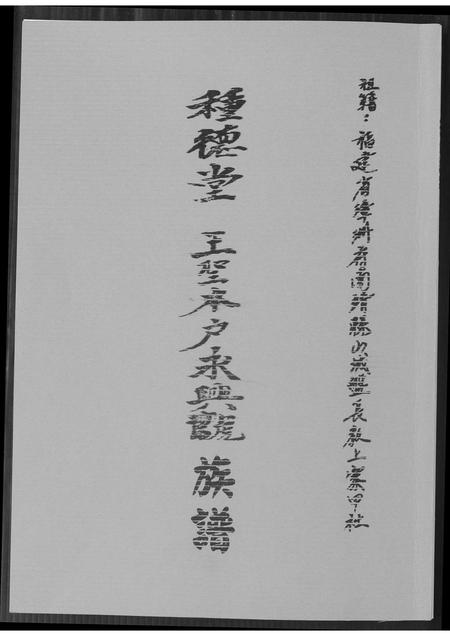 祖籍：福建省漳州府南靖縣山城豐長教上寨甲社
種德堂 王聖本户永興號 族譜